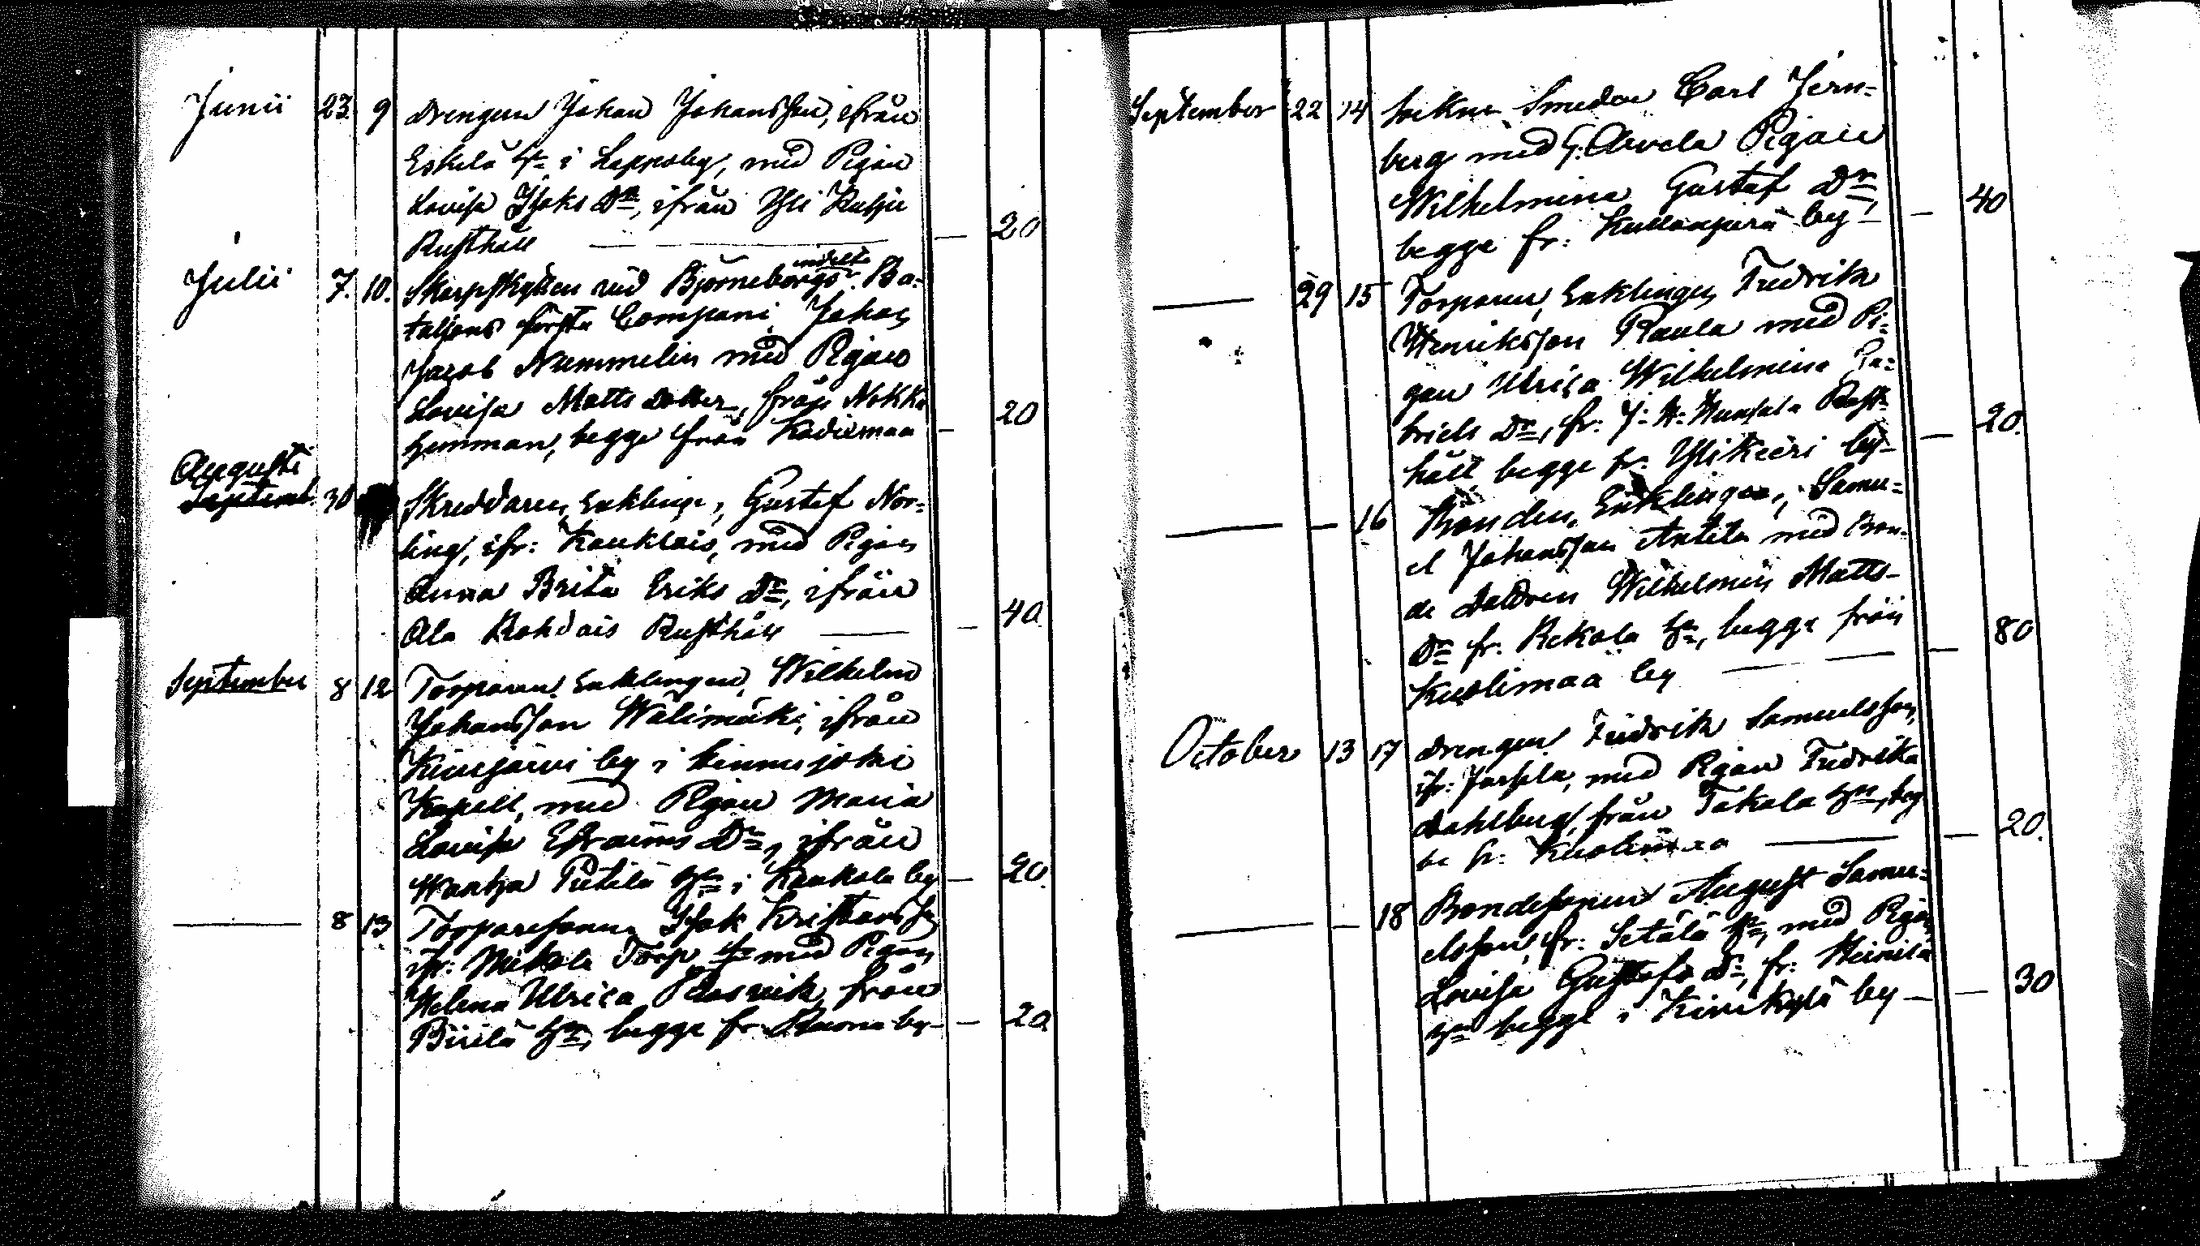 Junii 23. 9 Drengen Johan Johansson, ifrån
Eskelä Hn i Lappoby, med Pigan
Lovisa Isaks Dr, ifrån Yli
Rusthåll — — 20
Julii 7. 10. Skarpskytten vid Björneborgs indelta Ba-
taljons första Compani Johan
Jacob Nummelin med Pigan
Lovisa Matts Dotter, från Nokka
hemman, begge från Kadiemaa — 20
Augusti
Septemb. 30 Skreddaren, Enklingen, Gustaf Nor-
ling, ifr: Kauklais, med Pigan
Anna Brita Eriks Dr, ifrån
Ala Kohdais Rusthåll — — 40
September 8 12 Torparen, Enklingen, Wilhelm
Johansson Wälimäki, ifrån
by i Kinnusjoki
Kapell, med Pigan Maria
Lovisa Efraims Dr, ifrån
Hn i Kaukola by — 20.
— 8 13 Torparesonen Isak Kristiansson
ifr: Mikola Torp med Pigan
Helena Ulrica från
Hn, begge fr. by — — 20
September 22 14 Sockne Smeden Carl Jern-
berg med Pigan
Wilhelmina Gustaf Dr,
begge fr: Kullanperä by — — 40
— 29 15 Torparen, Enklingen, Fredrik
Henriksson Raula med Pi-
gan Ulrica Wilhelmina Ga-
briels Dr, fr. Rust-
håll begge fr. Ylikeeri by — — 20.
— — 16 Bonden, Enklingen, Samu-
el Johansson Anttila med Bon-
de Dottren Wilhelmin Matts
Dr fr. Rekola Hn, begge från
Kuolimaa by — — 80
October 13 17 Drengen Fredrik Samuelsson,
ifr: med Pigan Fredrika
Dahlberg, från Takala Hn, beg
ge fr. Kuolimaa — — 20.
— — 18 Bondesonen August Samu-
elsson, fr: Setälä Hn, med Pigan
Lovisa Gustafs Dr, fr. Heinilä
Hn begge i Kirikylä by — — 30